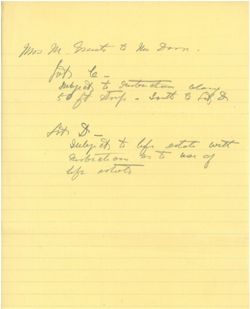 Mrs M. to Mr Dorn.
Lot C -
Subject to restriction along
50 ft strip - South to Lot D
Lot D -
Subject to life estate with
restrictions as to use of
life estate